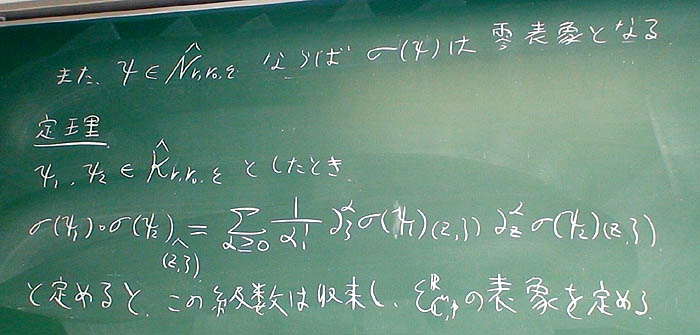 また、ψ ∈ N̂_{r,r₀,ε} ならば σ(ψ)は 零表象となる
定理
ψ₁, ψ₂ ∈ K̂_{r,r₀,ε} としたとき
σ(ψ₁)∘σ(ψ₂)(z,ζ) = Σ_{α≥0} 1/α! ∂_ζ^α σ(ψ₁)(z,ζ) ∂_z^α σ(ψ₂)(z,ζ)
と定めると、この級数は収束し、の表象を定める